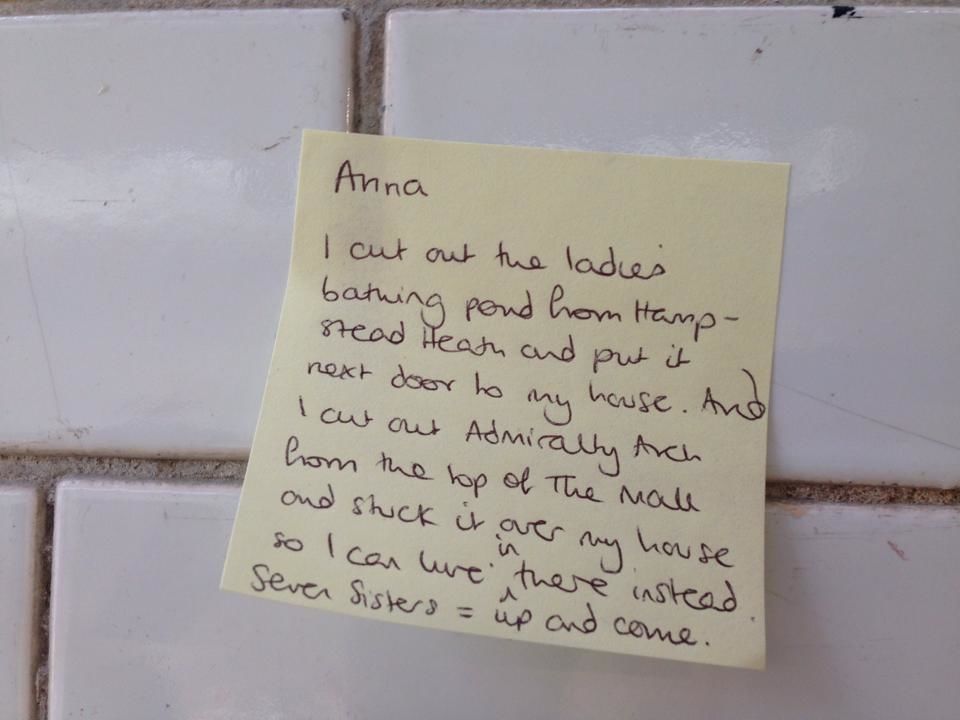 Anna
I cut out the ladies'
bathing pond from Hamp-
stead Heath and put it
next door to my house. And
I cut out Admiralty Arch
from the top of The Mall
and stuck it over my house
so I can live in there instead.
Seven Sisters = up and come.